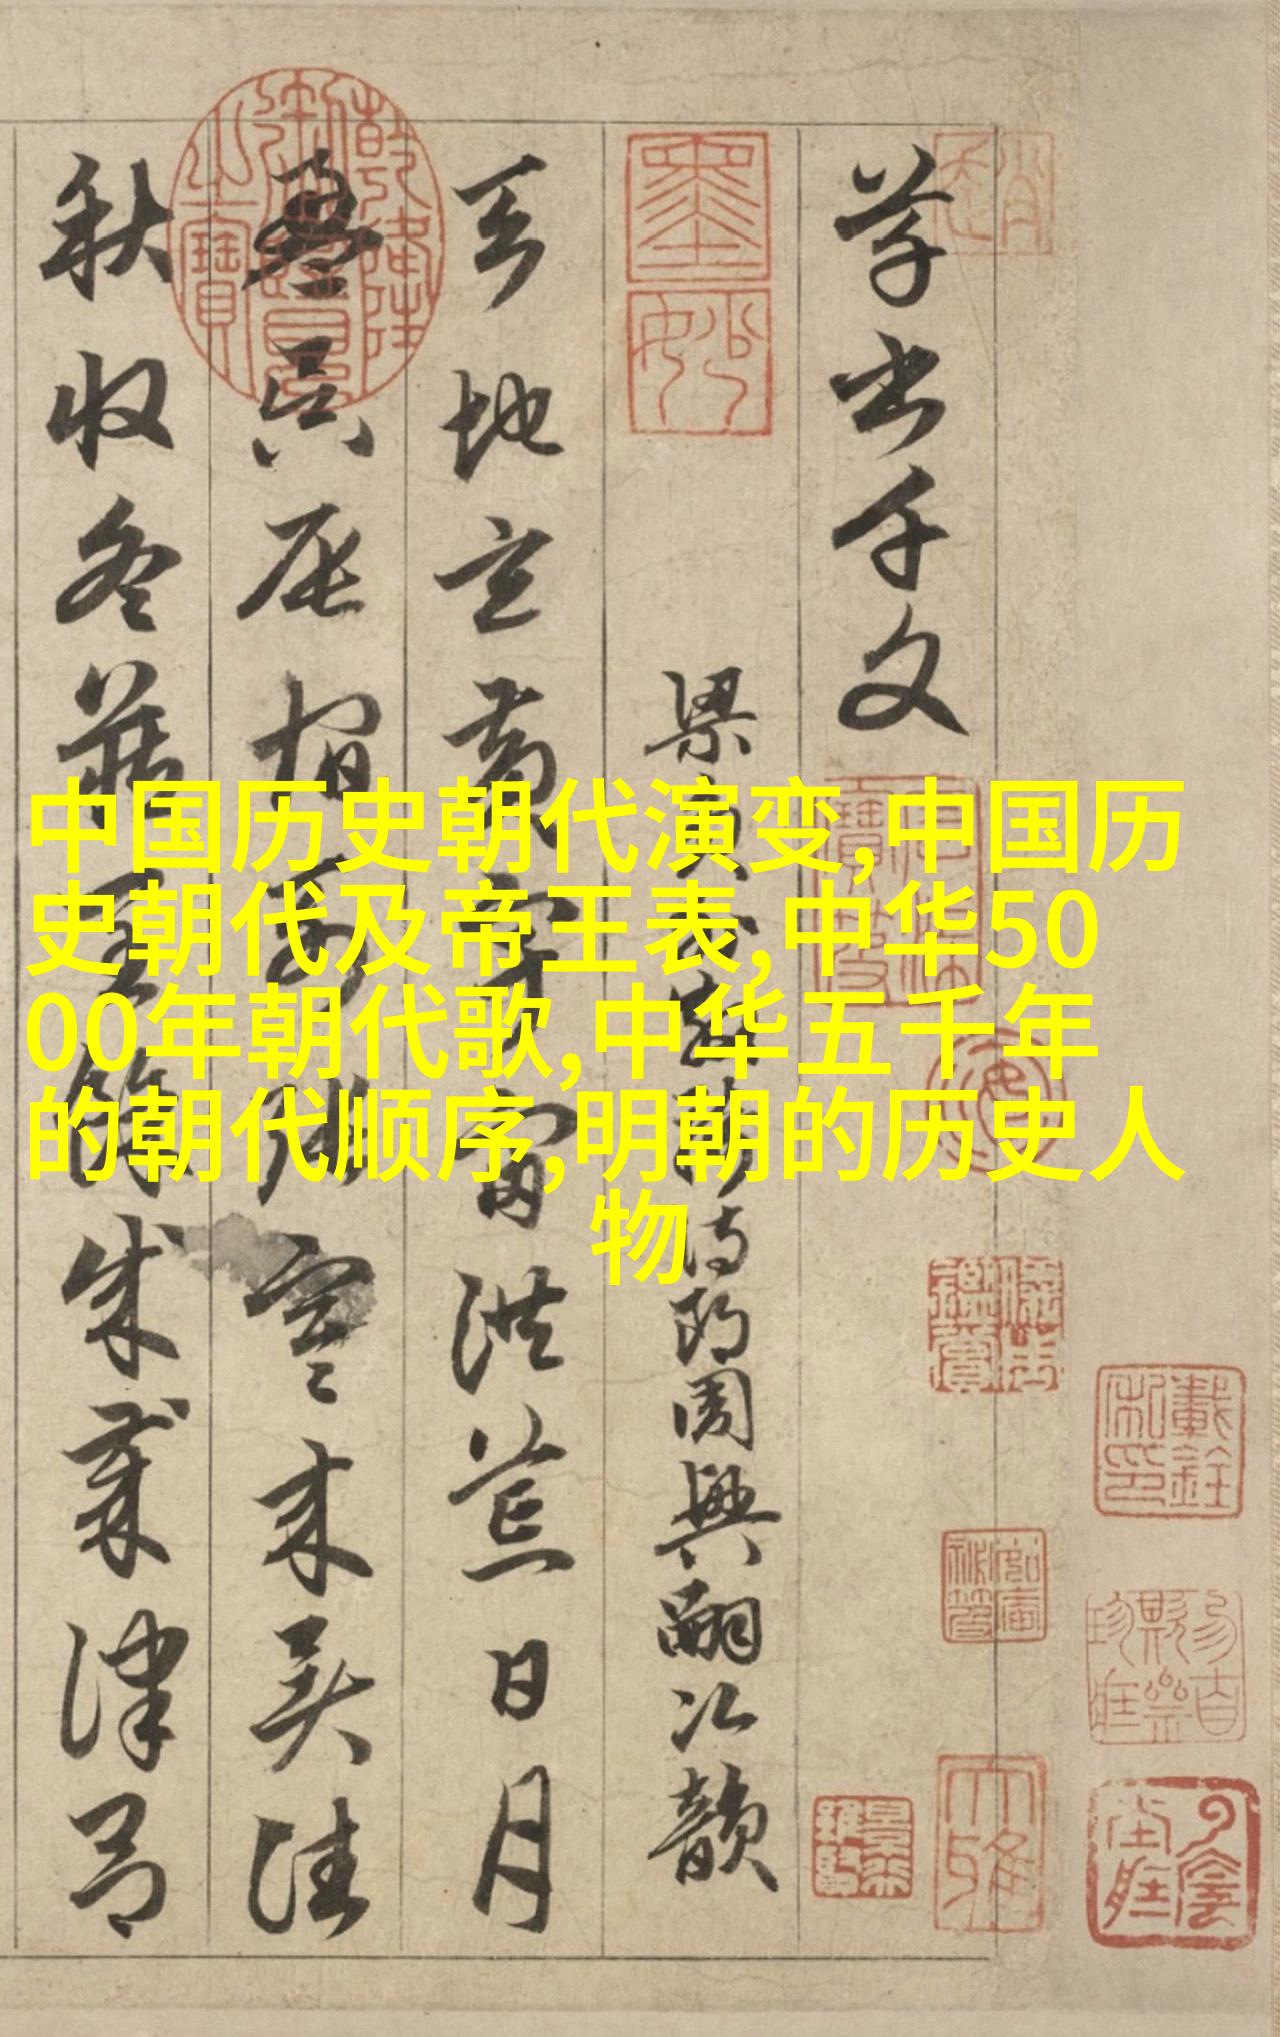 中国历史朝代演变,中国历
史朝代及帝王表,中华50
00年朝代歌,中华五千年
的朝代顺序,明朝的历史人
物
草书千文
梁員外散騎侍郎周興嗣次韻
天地玄黃宇宙洪荒日月
盈昃辰宿列張寒来暑往
秋收冬藏閏餘成歲律呂
墨妙
大雅